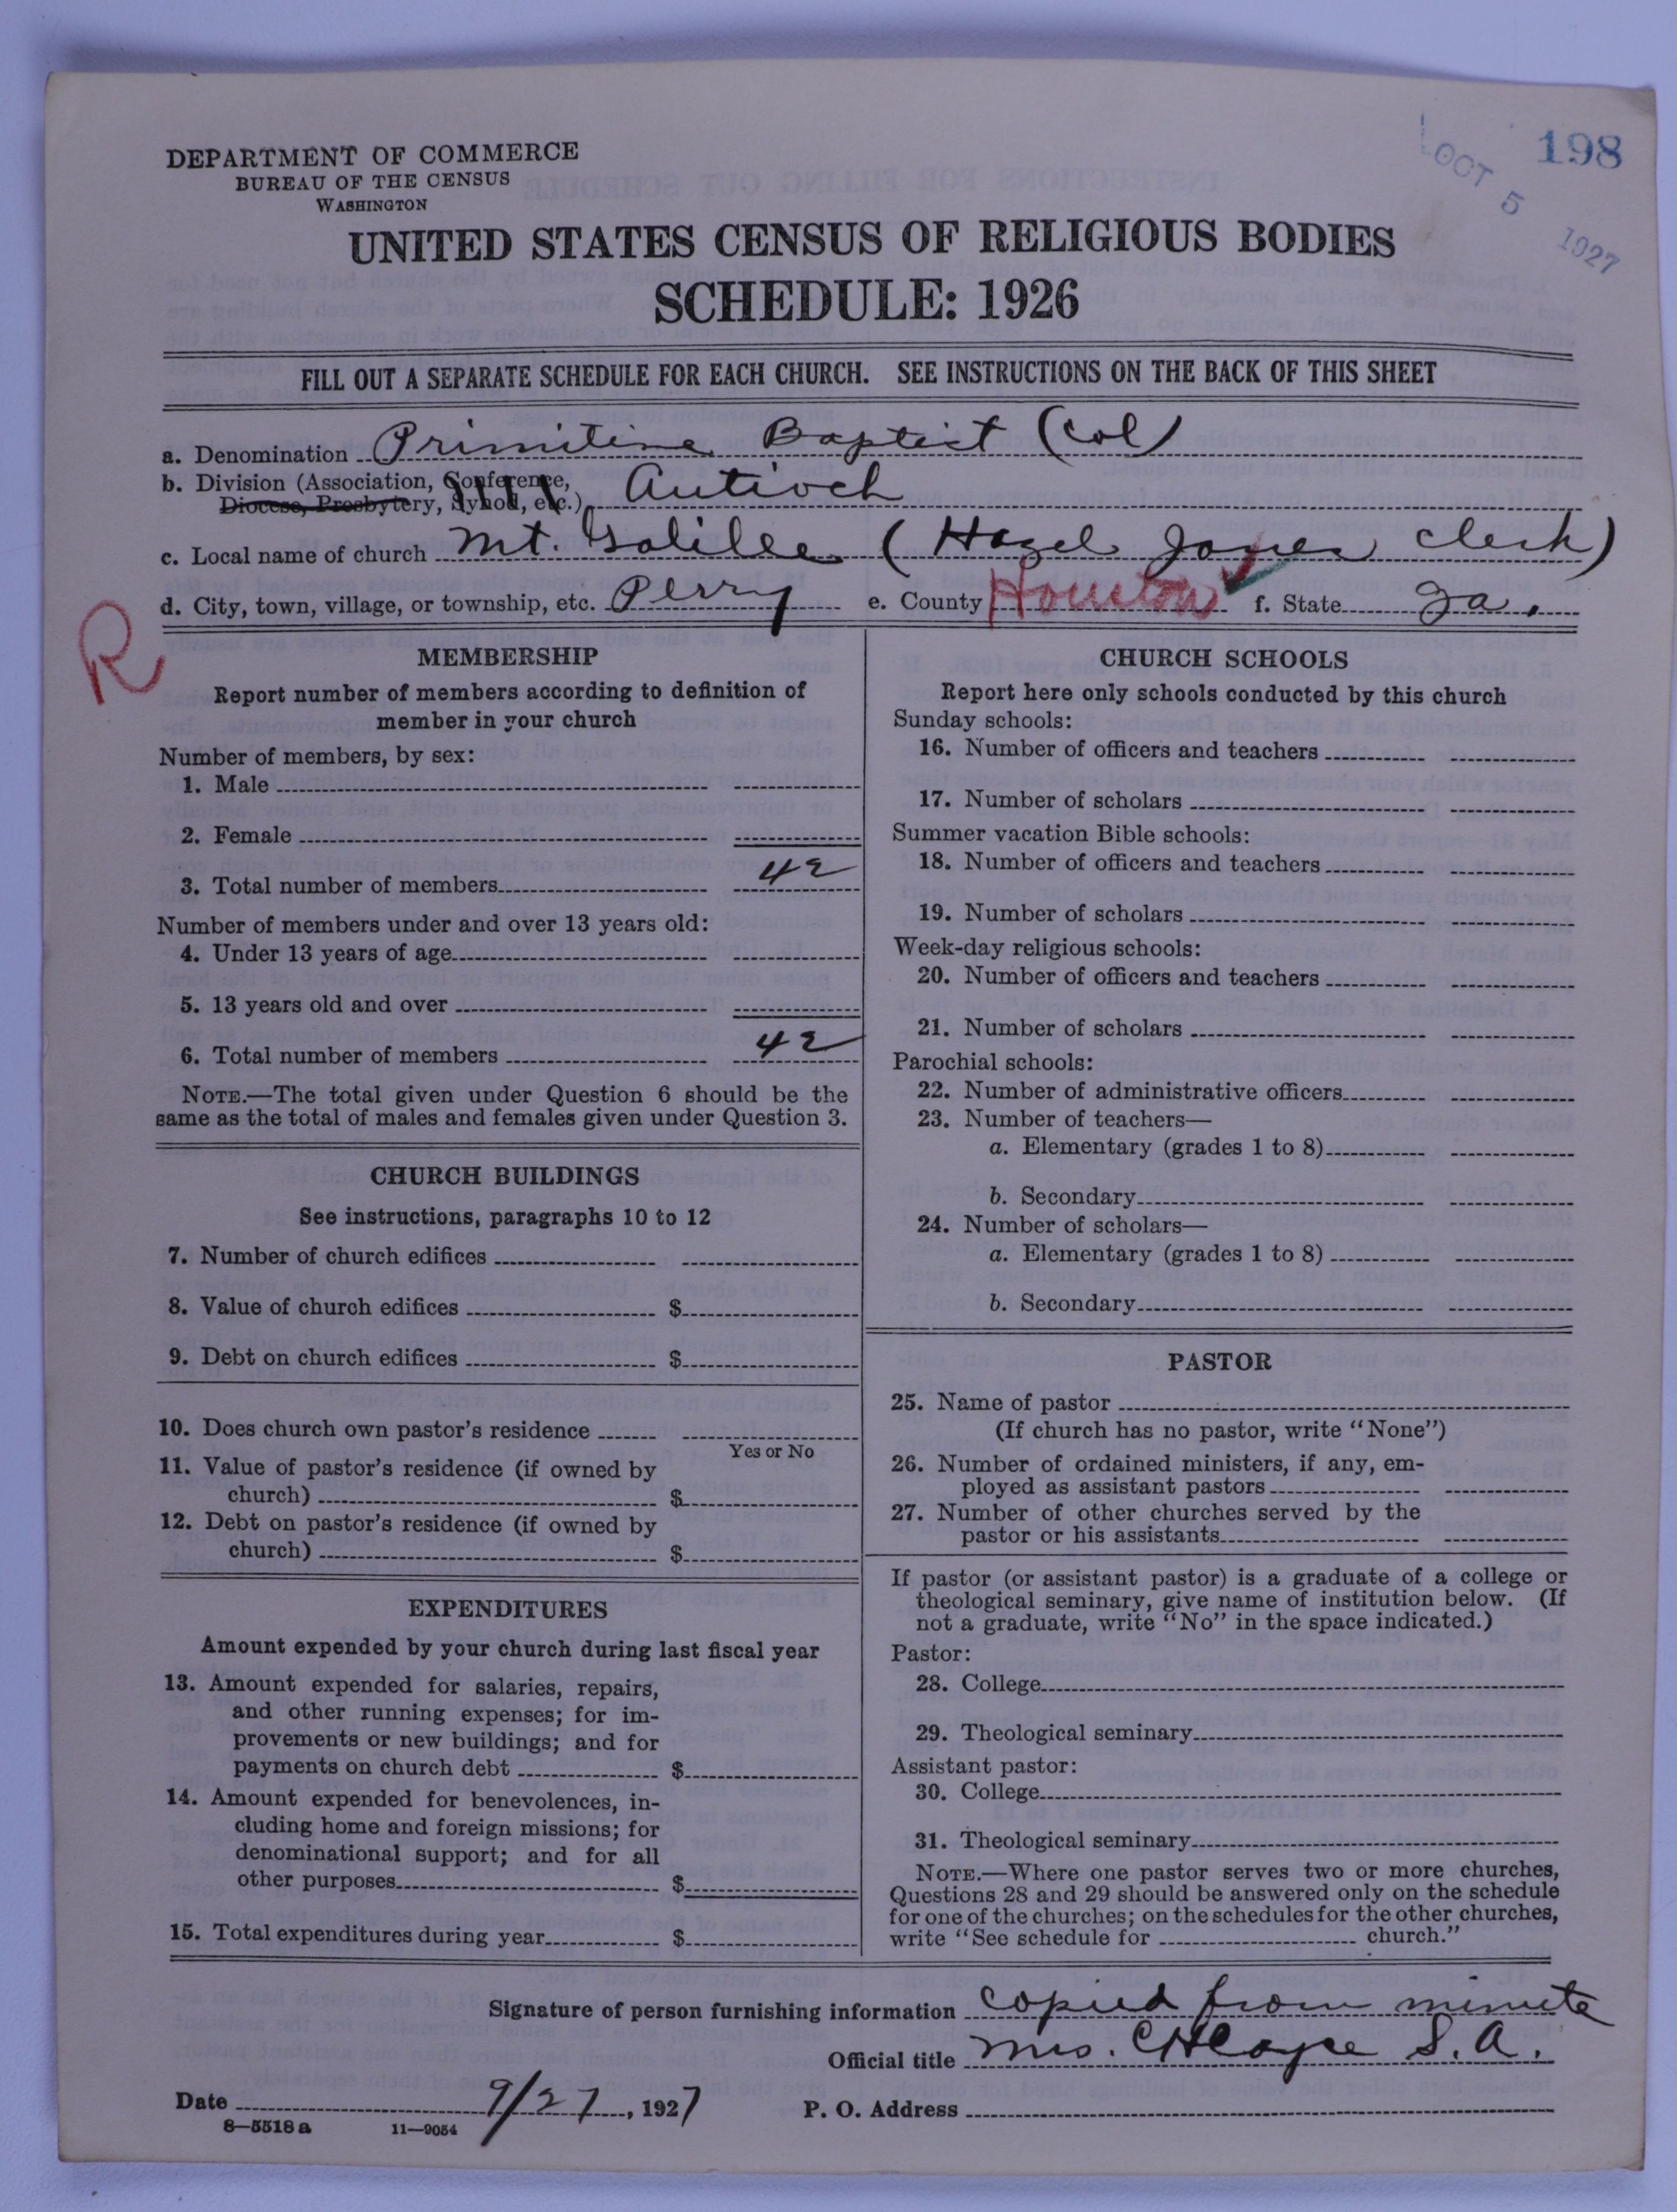 198
OCT 5 1927
DEPARTMENT OF COMMERCE
BUREAU OF THE CENSUS
WASHINGTON
UNITED STATES CENSUS OF RELIGIOUS BODIES
SCHEDULE: 1926
FILL OUT A SEPARATE SCHEDULE FOR EACH CHURCH. SEE INSTRUCTIONS ON THE BACK OF THIS SHEET
a. Denomination Primitive Baptist (Col)
b. Division (Association, Conference,
Diocese, Presbytery, Synod, etc.) Antioch
c. Local name of church Mt. Galilee (Hazel Jones Clerk)
d. City, town, village, or township, etc. Perry e. County Houston f. State Ga.
R
MEMBERSHIP
Report number of members according to definition of
member in your church
Number of members, by sex:
1. Male
2. Female
3. Total number of members 42
Number of members under and over 13 years old:
4. Under 13 years of age
5. 13 years old and over
6. Total number of members 42
NOTE.—The total given under Question 6 should be the
same as the total of males and females given under Question 3.
CHURCH BUILDINGS
See instructions, paragraphs 10 to 12
7. Number of church edifices
8. Value of church edifices $
9. Debt on church edifices $
10. Does church own pastor's residence
Yes or No
11. Value of pastor's residence (if owned by
church) $
12. Debt on pastor's residence (if owned by
church) $
EXPENDITURES
Amount expended by your church during last fiscal year
13. Amount expended for salaries, repairs,
and other running expenses; for im-
provements or new buildings; and for
payments on church debt $
14. Amount expended for benevolences, in-
cluding home and foreign missions; for
denominational support; and for all
other purposes $
15. Total expenditures during year $
CHURCH SCHOOLS
Report here only schools conducted by this church
Sunday schools:
16. Number of officers and teachers
17. Number of scholars
Summer vacation Bible schools:
18. Number of officers and teachers
19. Number of scholars
Week-day religious schools:
20. Number of officers and teachers
21. Number of scholars
Parochial schools:
22. Number of administrative officers
23. Number of teachers—
a. Elementary (grades 1 to 8)
b. Secondary
24. Number of scholars—
a. Elementary (grades 1 to 8)
b. Secondary
PASTOR
25. Name of pastor
(If church has no pastor, write "None")
26. Number of ordained ministers, if any, em-
ployed as assistant pastors
27. Number of other churches served by the
pastor or his assistants
If pastor (or assistant pastor) is a graduate of a college or
theological seminary, give name of institution below. (If
not a graduate, write "No" in the space indicated.)
Pastor:
28. College
29. Theological seminary
Assistant pastor:
30. College
31. Theological seminary
NOTE.—Where one pastor serves two or more churches,
Questions 28 and 29 should be answered only on the schedule
for one of the churches; on the schedules for the other churches,
write "See schedule for church."
Signature of person furnishing information Copied from minute
Official title Mrs. S. A.
Date 9/27, 1927 P. O. Address
8—5518 a 11—9054